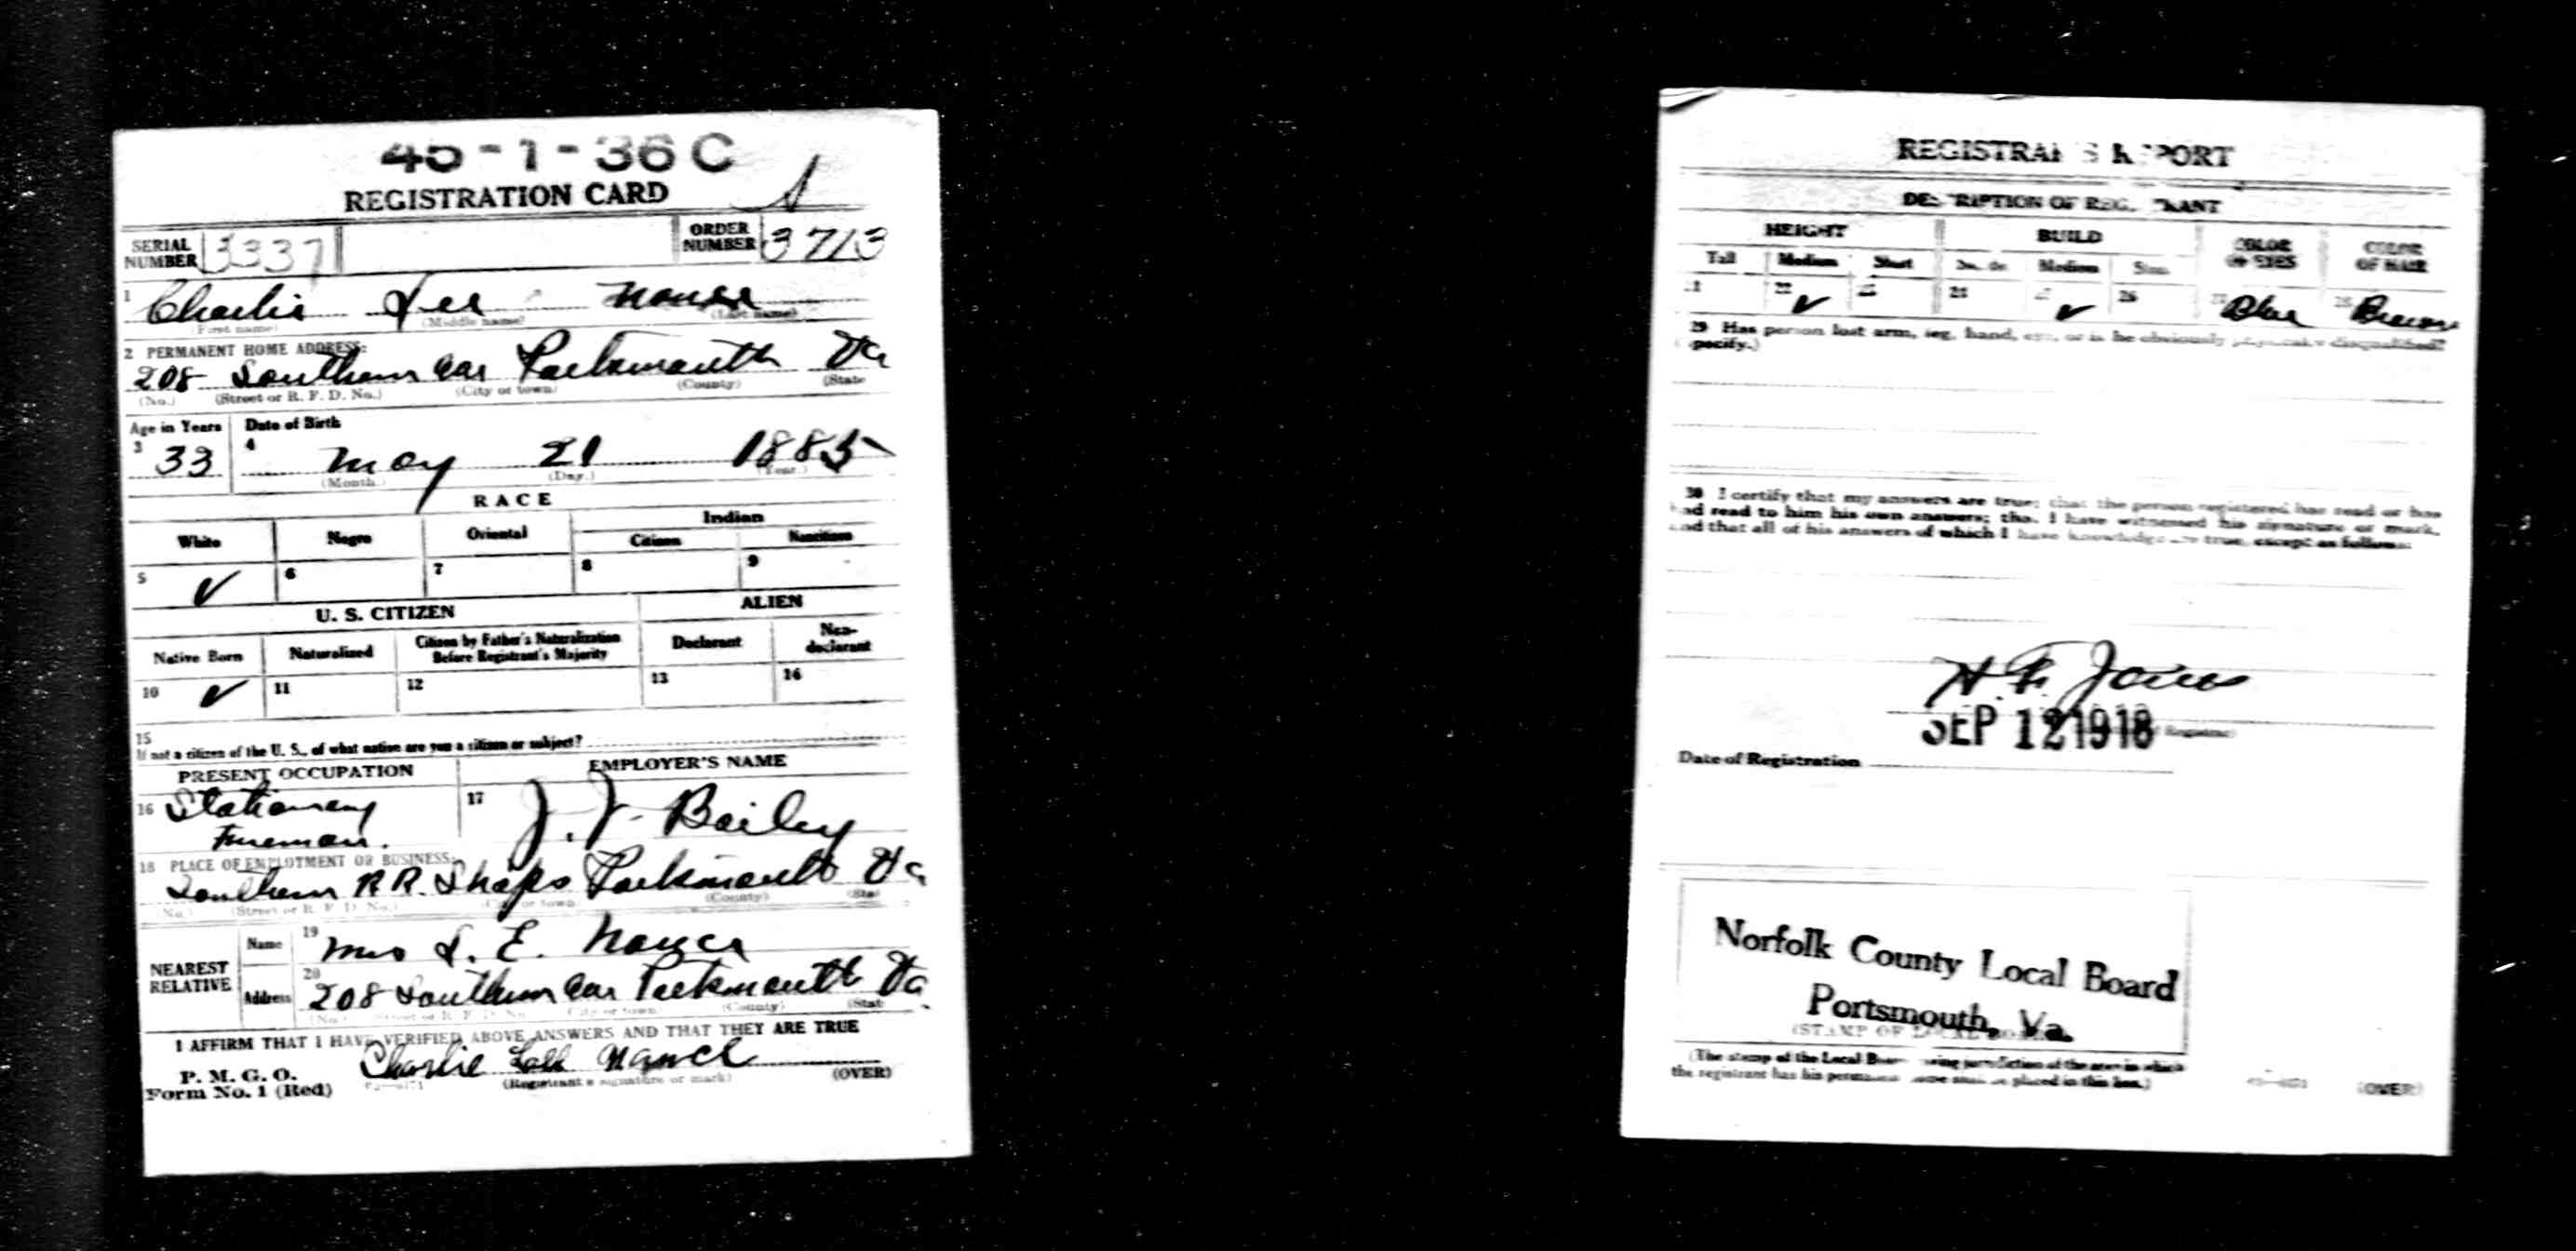 45-1-36 C
REGISTRATION CARD
SERIAL NUMBER 3337
ORDER NUMBER 3713
1 Charlie Lee Nance
(First name) (Middle name) (Last name)
2 PERMANENT HOME ADDRESS:
208 Southern Ave Portsmouth Va
(No.) (Street or R. F. D. No.) (City or town) (County) (State
Age in Years Date of Birth
3 33 4 May 21 1885
(Month.) (Day.) (Year.)
RACE
White Negro Oriental Indian
Citizen Noncitizen
5 ✓ 6 7 8 9
U. S. CITIZEN ALIEN
Native Born Naturalized Citizen by Father's Naturalization Before Registrant's Majority Declarant Non-declarant
10 ✓ 11 12 13 14
15
If not a citizen of the U. S., of what nation are you a citizen or subject?
PRESENT OCCUPATION EMPLOYER'S NAME
16 Stationary 17 J. J. Bailey
Fireman.
18 PLACE OF EMPLOYMENT OR BUSINESS:
Southern R R. Shops Portsmouth Va
(No.) (Street or R. F. D. No.) (City or town) (County) (Sta
NEAREST RELATIVE
Name 19 Mrs L. E. Nance
Address 20 208 Southern Ave Portsmouth Va
(No.) (Street or R. F. D. No.) (City or town) (County) (Stat
I AFFIRM THAT I HAVE VERIFIED ABOVE ANSWERS AND THAT THEY ARE TRUE
P. M. G. O.
Form No. 1 (Red)
Charlie Nance
(Registrant's signature or mark) (OVER)
REGISTRAR'S REPORT
DESCRIPTION OF REGISTRANT
HEIGHT BUILD COLOR OF EYES COLOR OF HAIR
Tall Medium Short Slender Medium Stout
21 22 ✓ 23 24 25 ✓ 26 27 Blue 28 Brown
29 Has person lost arm, leg, hand, eye, or is he obviously physically disqualified?
(Specify.)
30 I certify that my answers are true; that the person registered has read or has
had read to him his own answers; that I have witnessed his signature or mark,
and that all of his answers of which I have knowledge are true, except as follows:
H. F. Jones
(Registrar)
Date of Registration SEP 12 1918
Norfolk County Local Board
Portsmouth, Va.
(STAMP OF LOCAL BOARD)
(The stamp of the Local Board having jurisdiction of the area in which
the registrant has his permanent home shall be placed in this box.)
(OVER)